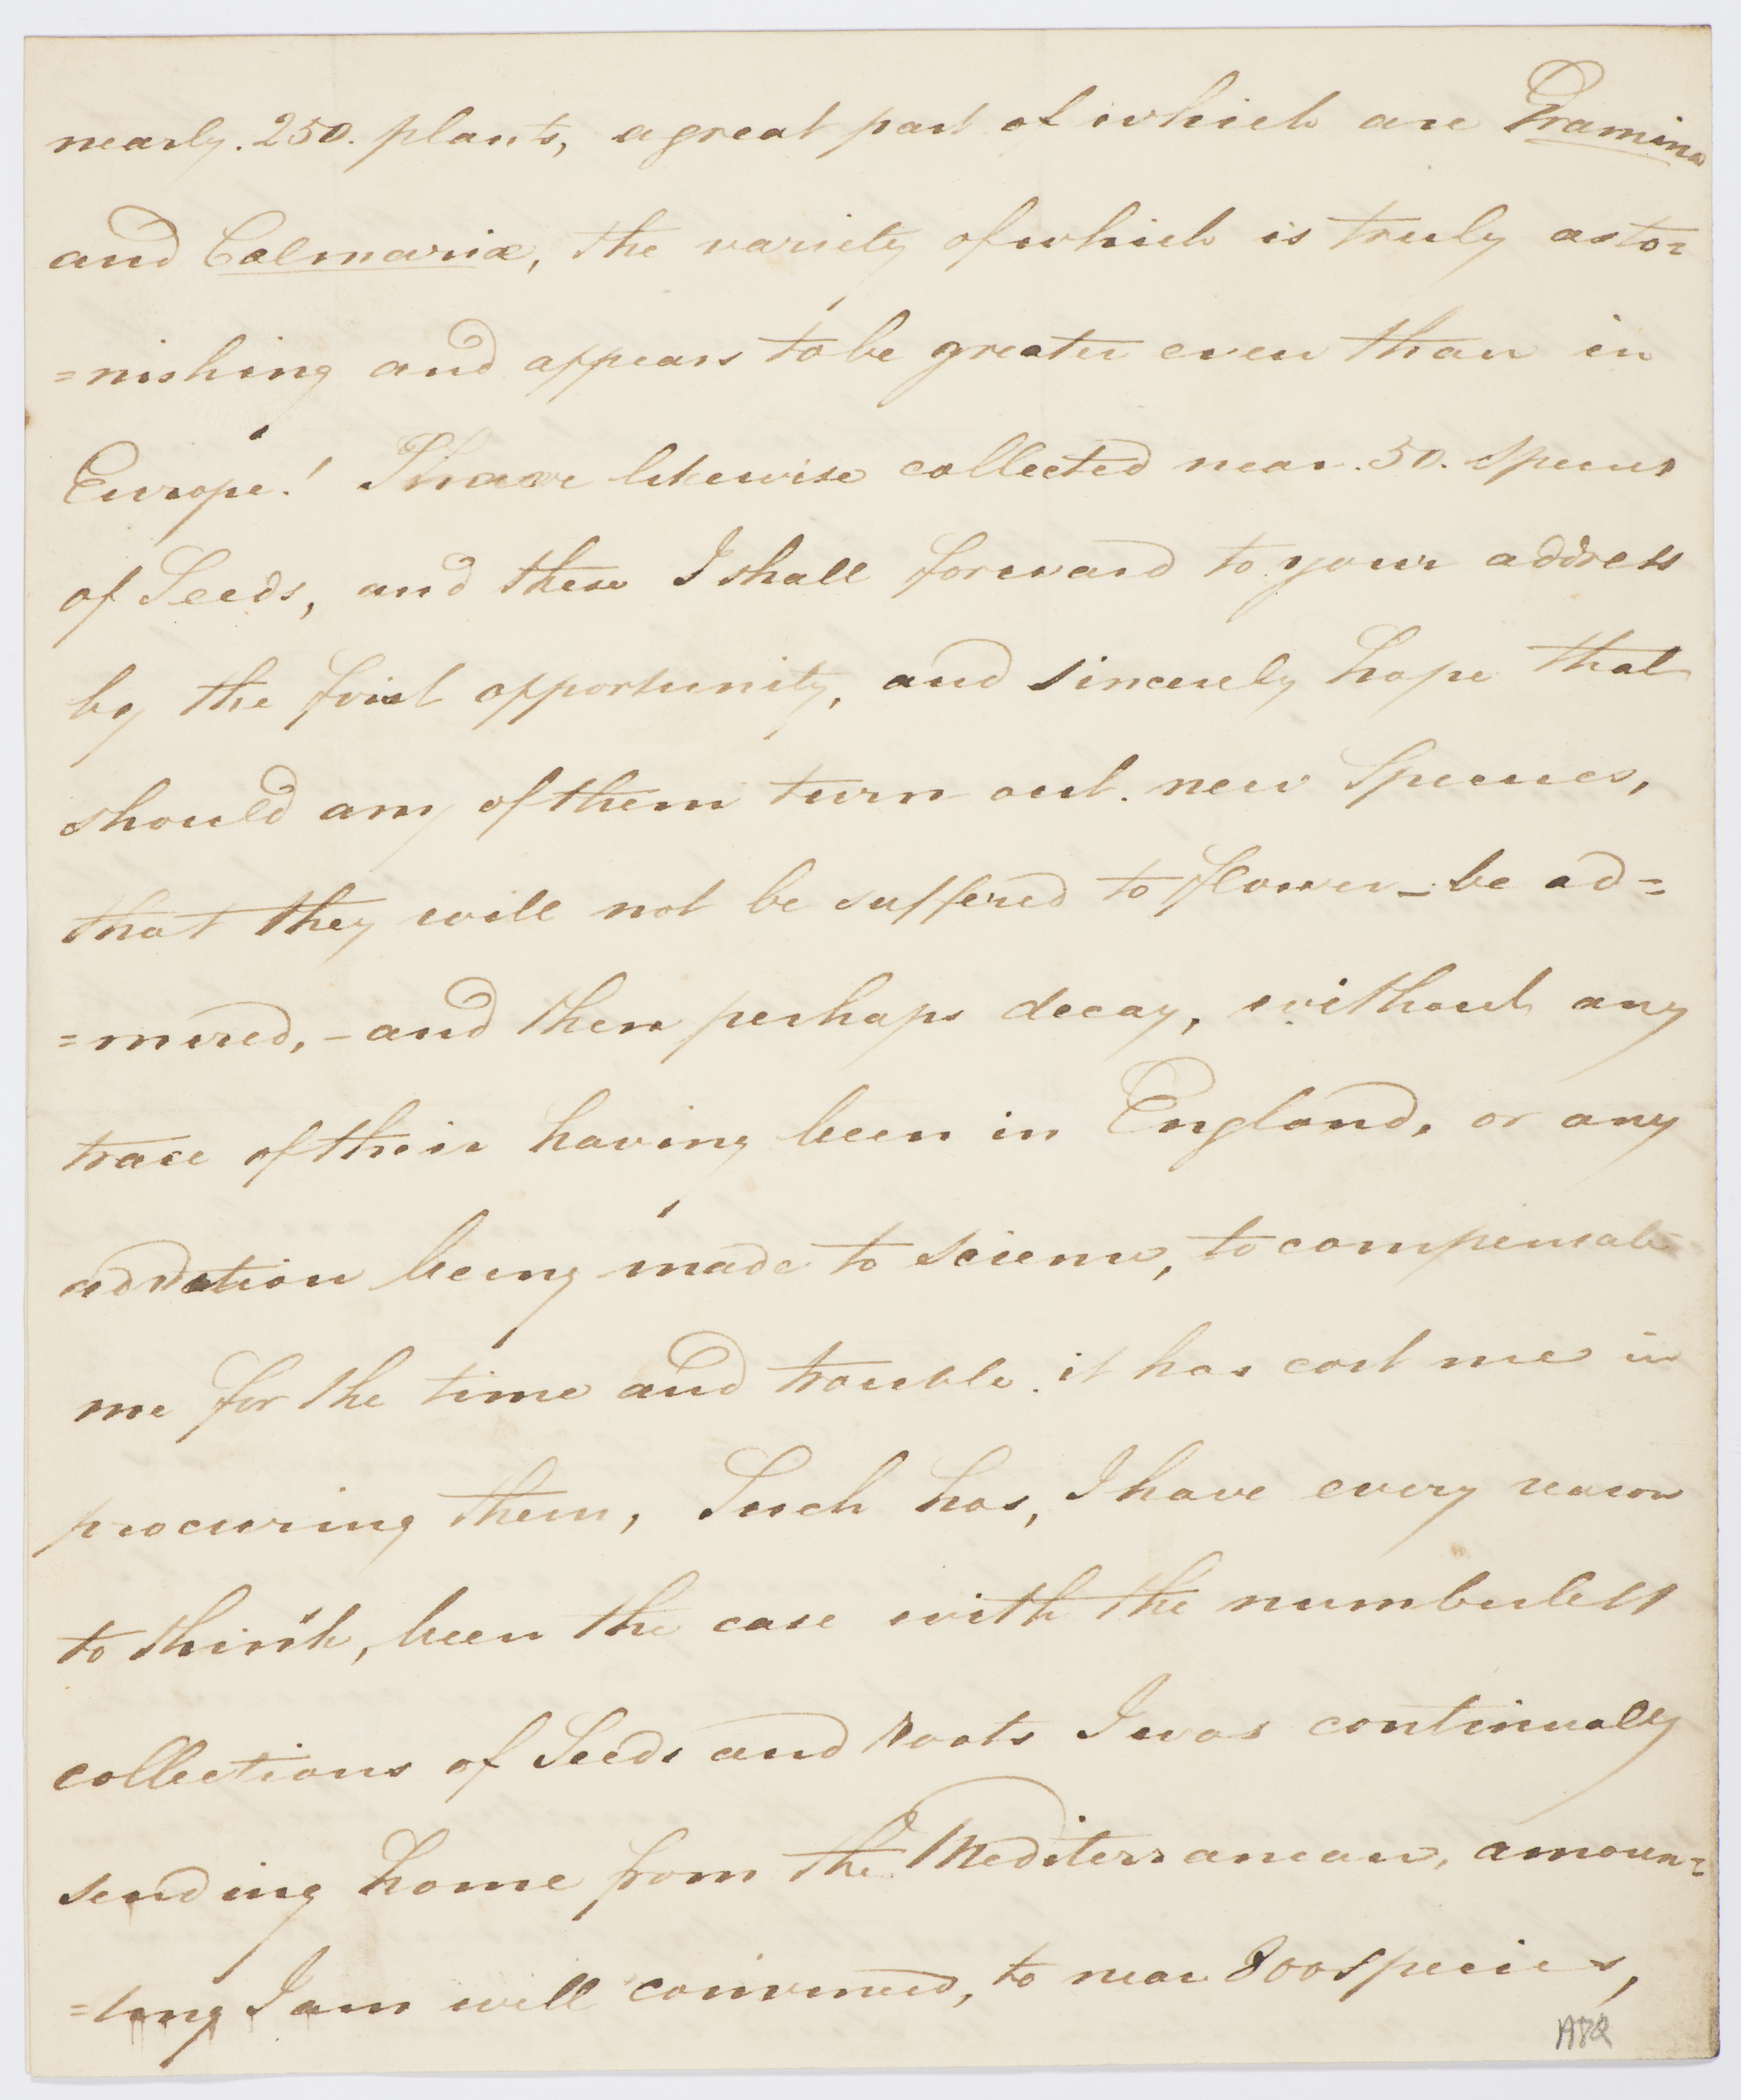 nearly. 250. plants, a great part of which are Gramina
and Calmariæ, the variety of which is truly asto=
=nishing and appears to be greater even than in
Europe! I have likewise collected near. 50. Species
of Seeds, and these I shall forward to your address
by the first opportunity, and sincerely hope that
should any of them turn out. new Species,
that they will not be suffered to flower – be ad=
=mired, – and then perhaps decay, without any
trace of their having been in England, or any
addition being made to science, to compensate
me for the time and trouble it has cost me in
procuring them, Such has, I have every reason
to think, been the case with the numberless
collections of Seeds and roots I was continually
sending home from the Mediterranean, amoun=
=ting I am well convinced, to near 800 Species,